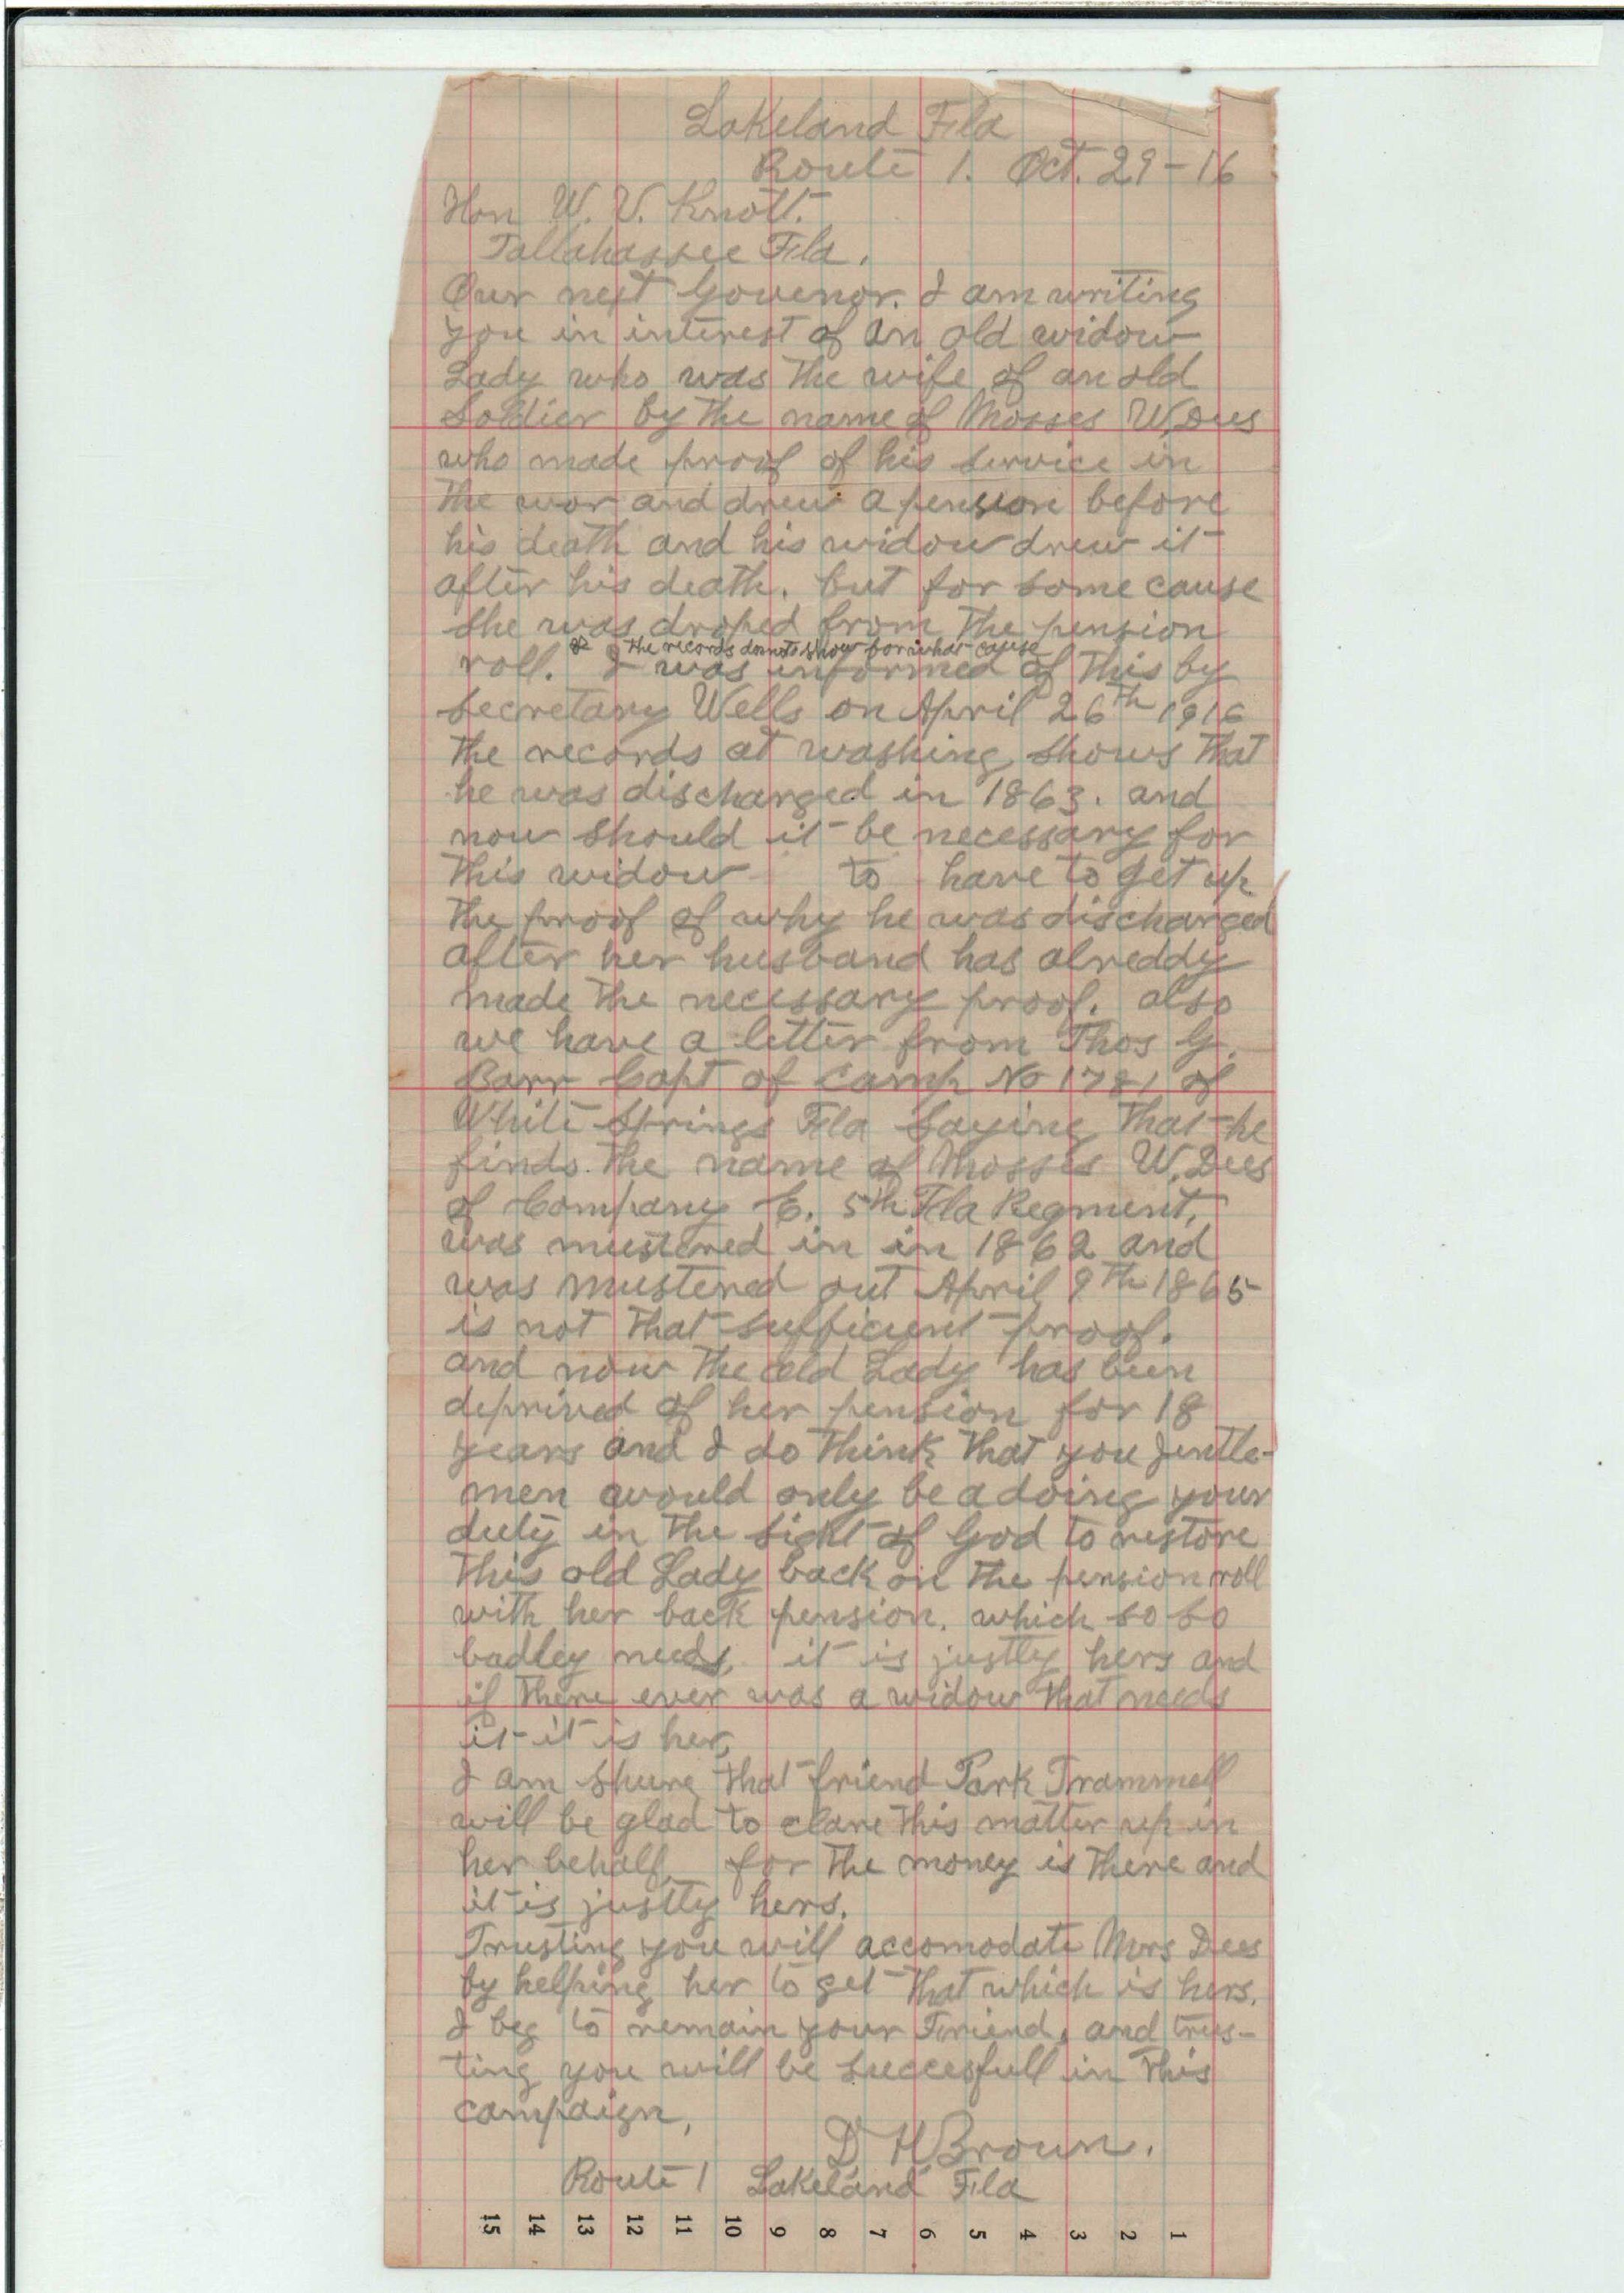 Lakeland Fla
Route 1. Oct. 29-16
Hon W. V. Knott.
Tallahassee Fla.
Our next Govenor. I am writing
you in interest of an old widow
Lady who was the wife of an old
Soldier by the name of Mosses W. Dees
who made proof of his service in
the war and drew a pension before
his death and his widow drew it
after his death. but for some cause
she was droped from the pension
& the records donnot show for what cause
roll. I was informed of this by
Secretary Wells on April 26th 1916
the records at washing shows that
he was discharged in 1863. and
now should it be necessary for
this widow to have to get up
the proof of why he was discharged
after her husband has alreddy
made the necessary proof. also
we have a letter from Thos G.
Barr Capt of Camp No 1781 of
White Springs Fla saying that he
finds the name of Mosses W. Dees
of Company E. 5th Fla Regment,
was mustered in in 1862 and
was mustered out April 9th 1865
is not that sufficient proof.
and now the old Lady has been
deprived of her pension for 18
years and I do think that you Jentle-
men would only be a doing your
duty in the sight of God to restore
this old Lady back on the pension roll
with her back pension. which so so
badley needs. it is justly hers and
if there ever was a widow that needs
it it is her,
I am shure that friend Park Trammell
will be glad to clare this matter up in
her behalf for the money is there and
it is justly hers.
Trusting you will accomodate Mrs Dees
by helping her to get that which is hers.
I beg to remain your Friend, and trus-
ting you will be succesfull in this
campaign,
D H Brown.
Route 1 Lakeland Fla
15 14 13 12 11 10 9 8 7 6 5 4 3 2 1